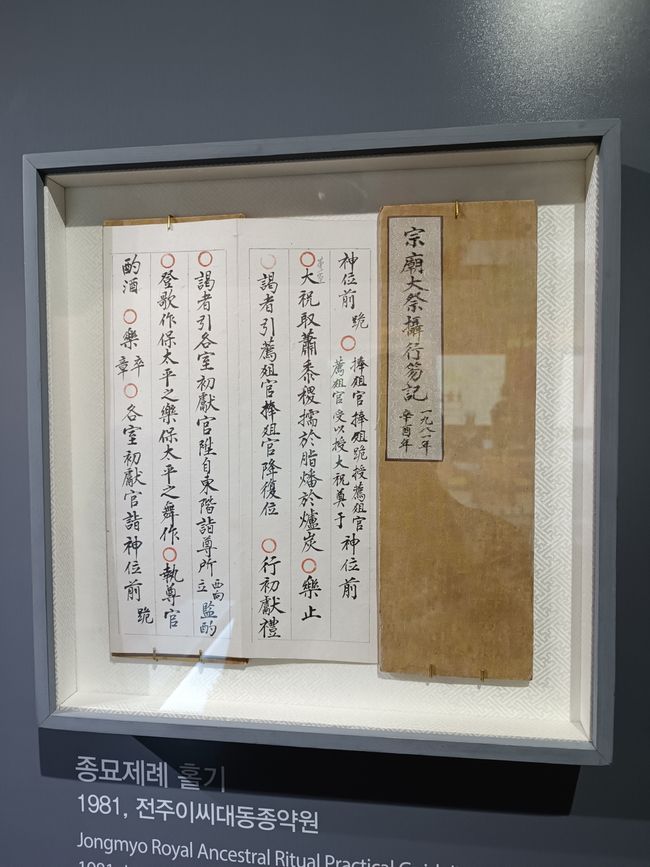 宗廟大祭攝行笏記
一九八一年
辛酉年
神位前 跪 ○ 捧俎官捧俎跪授薦俎官 薦俎官受以授大祝奠于 神位前
○大祝取蕭黍稷擩於脂燔於爐炭 ○樂止
○謁者引薦俎官捧俎官降復位 ○行初獻禮
○謁者引各室初獻官陞自東階詣尊所 西向立 監酌
○登歌作保太平之樂保太平之舞作○執尊官
酌酒 ○樂卒章○各室初獻官詣神位前 跪
종묘제례 홀기
1981, 전주이씨대동종약원
Jongmyo Royal Ancestral Ritual Practical
1981,